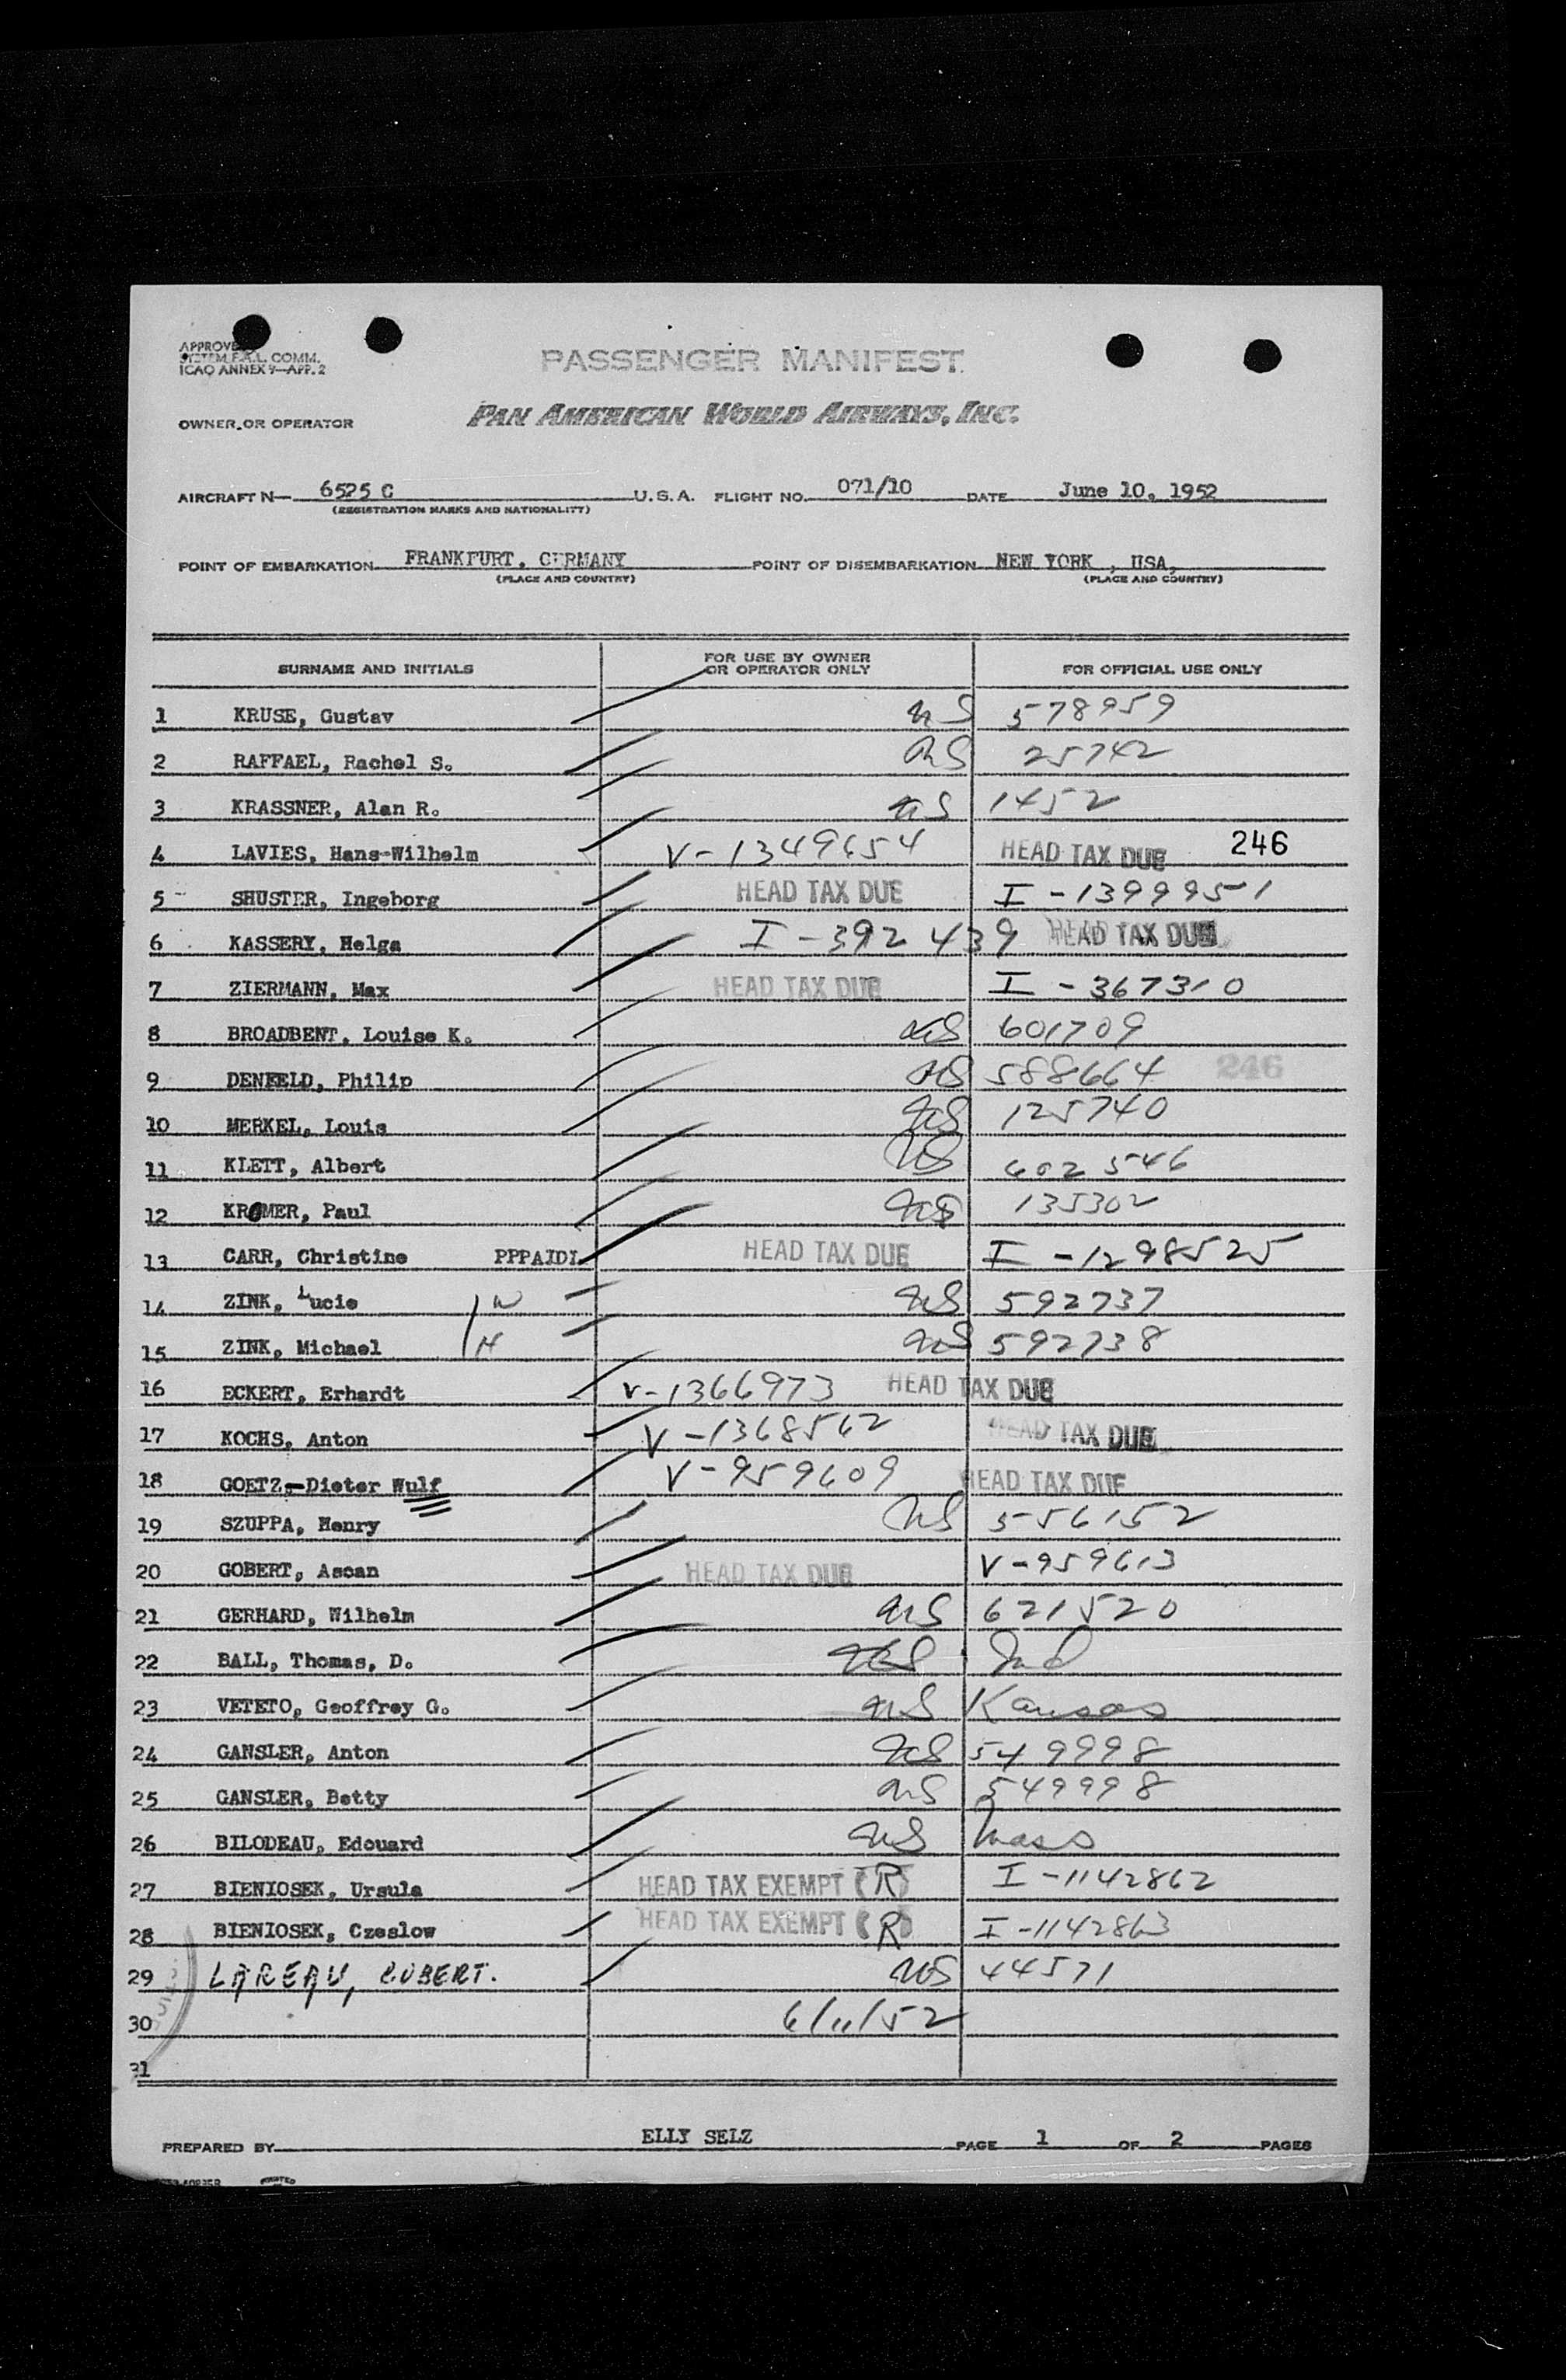 APPROVED
SYSTEM F.A.L. COMM.
ICAO ANNEX 9—APP. 2
PASSENGER MANIFEST
OWNER OR OPERATOR PAN AMERICAN WORLD AIRWAYS, INC.
AIRCRAFT N— 6525 C U.S.A. FLIGHT NO. 071/10 DATE June 10, 1952
(REGISTRATION MARKS AND NATIONALITY)
POINT OF EMBARKATION FRANKFURT, GERMANY POINT OF DISEMBARKATION NEW YORK , USA,
(PLACE AND COUNTRY) (PLACE AND COUNTRY)
SURNAME AND INITIALS FOR USE BY OWNER OR OPERATOR ONLY FOR OFFICIAL USE ONLY
1 KRUSE, Gustav US 578959
2 RAFFAEL, Rachel S. US 25742
3 KRASSNER, Alan R. US 1452
4 LAVIES, Hans-Wilhelm V-1349654 HEAD TAX DUE 246
5 SHUSTER, Ingeborg HEAD TAX DUE I-1399951
6 KASSERY, Helga I-392439 HEAD TAX DUE
7 ZIERMANN, Max HEAD TAX DUE I-367310
8 BROADBENT, Louise K. US 601709
9 DENFELD, Philip US 588664 246
10 MERKEL, Louis US 125740
11 KLETT, Albert US 602546
12 KROMER, Paul US 135302
13 CARR, Christine PPPAIDI HEAD TAX DUE I-1298525
14 ZINK, Lucie W US 592737
15 ZINK, Michael H US 592738
16 ECKERT, Erhardt V-1366973 HEAD TAX DUE
17 KOCHS, Anton V-1368562 HEAD TAX DUE
18 GOETZ,-Dieter Wulf V-959609 HEAD TAX DUE
19 SZUPPA, Henry US 556152
20 GOBERT, Ascan HEAD TAX DUE V-959613
21 GERHARD, Wilhelm US 621520
22 BALL, Thomas, D. US Ind
23 VETETO, Geoffrey G. US Kansas
24 GANSLER, Anton US 549998
25 GANSLER, Betty US 549998
26 BILODEAU, Edouard US Mass
27 BIENIOSEK, Ursula HEAD TAX EXEMPT (R) I-1142862
28 BIENIOSEK, Czeslow HEAD TAX EXEMPT (R) I-1142863
29 LAREAU, ROBERT. US 44571
30 6/11/52
31
PREPARED BY ELLY SELZ PAGE 1 OF 2 PAGES